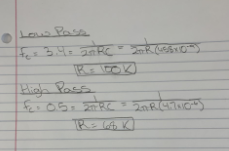 Low Pass
fc = 3.4 = 1/2πRC = 1/2πR(
R = 100 K
High Pass
fc = 0.5 = 1/2πRC = 1/2πR(4.7×10⁻⁶)
R = 68 K